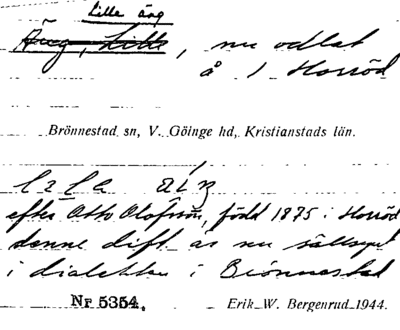 Lille äng
Äng, Lille, nu odlat
å 1 Horröd
Brönnestad sn, V. Göinge hd, Kristianstads län.
efter Otto Olofsson, född 1875 i Horröd
denne dift. är nu sällsynt
i dialekten i Brönnestad
Nr 5354. Erik W. Bergenrud 1944.